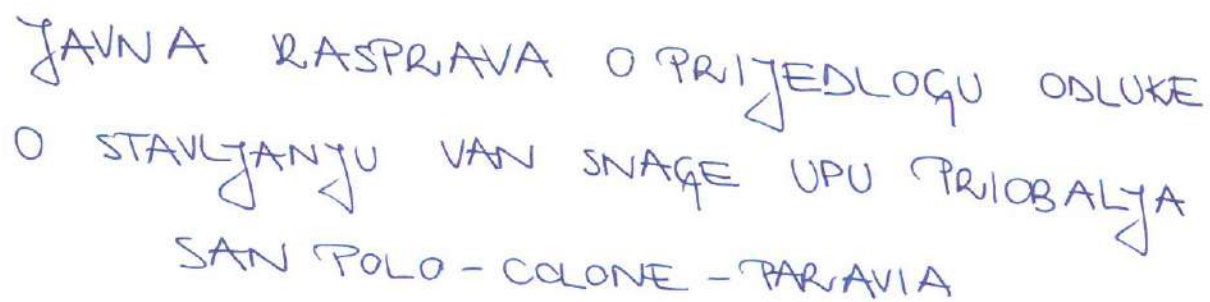 JAVNA RASPRAVA O PRIJEDLOGU ODLUKE
O STAVLJANJU VAN SNAGE UPU PRIOBALJA
SAN POLO - COLONE - PARAVIA